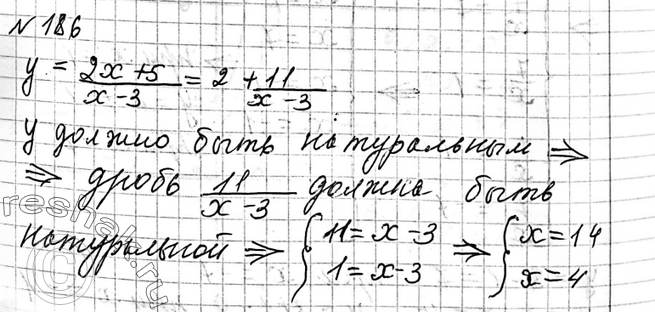 № 186
y = \frac{2x+5}{x-3} = 2 + \frac{11}{x-3}
y должно быть натуральным ⇒
⇒ дробь \frac{11}{x-3} должна быть
натуральной ⇒ { 11 = x-3 ⇒ { x=14
1 = x-3 x=4
reshak.ru